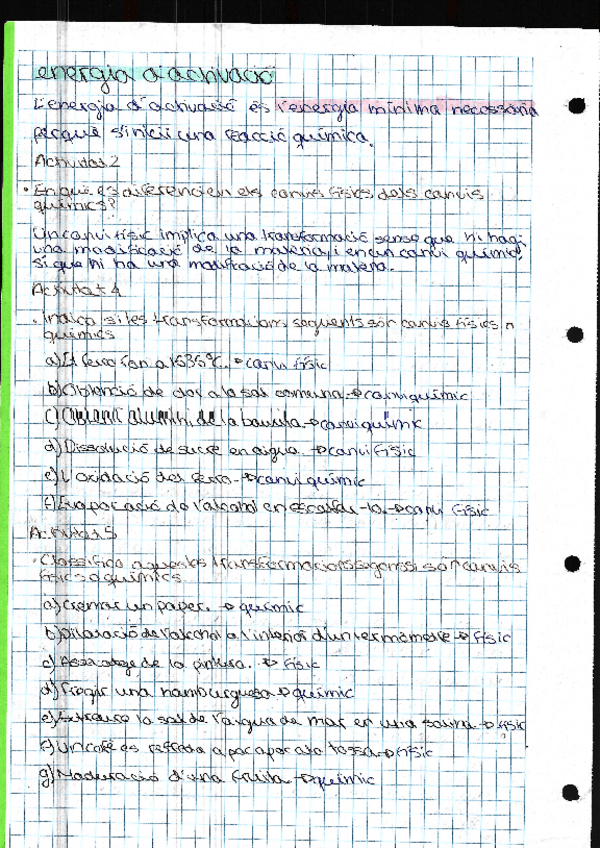 energia d'activació
L'energia d'activació és l'energia mínima necessària
perquè s'inicii una reacció química.
Activitat 2
• En què es diferencien els canvis físics dels canvis
químics?
Un canvi físic implica una transformació sense que hi hagi
una modificació de la matèria, i en un canvi químic,
sí que hi ha una modificació de la matèria.
Activitat 4
• Indica si les transformacions següents són canvis físics o
químics
a) El ferro fon a 1535°C. → canvi físic
b) Obtenció de clor a la sal comuna → canvi químic
c) alumini de la bauxita → canvi químic
d) Dissolució de sucre en aigua. → canvi físic
e) L'oxidació del ferro. → canvi químic
f) Evaporació de l'alcohol en escalfar-lo. → canvi físic
Activitat 5
• Classifica aquestes transformacions segons si són canvis
físics o químics
a) Cremar un paper. → químic
b) Dilatació de l'alcohol a l'interior d'un termòmetre → físic
c) Assecatge de la pintura. → físic
d) Fregir una hamburguesa → químic
e) Extreure la sal de l'aigua de mar en una salina → físic
f) Un cafè es refreda a poc a poc a la tassa → físic
g) Maduració d'una fruita → químic